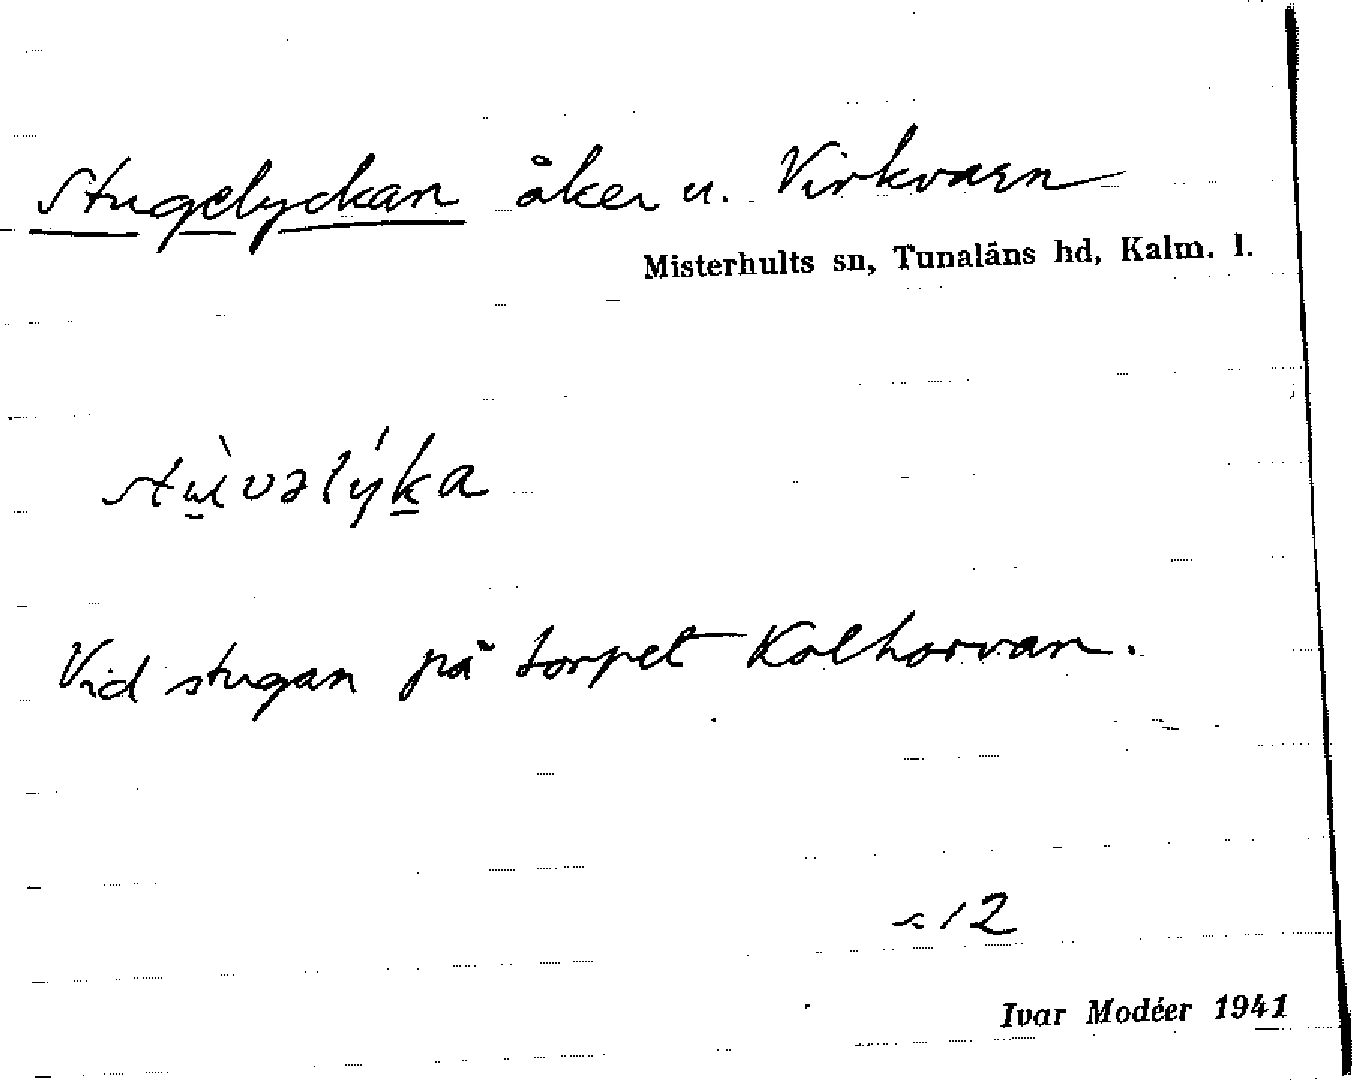 Stugelyckan åker u. Virkvarn
Misterhults sn, Tunaläns hd, Kalm. l.
Vid stugan på torpet Kolhorvan.
Ivar Modéer 1941